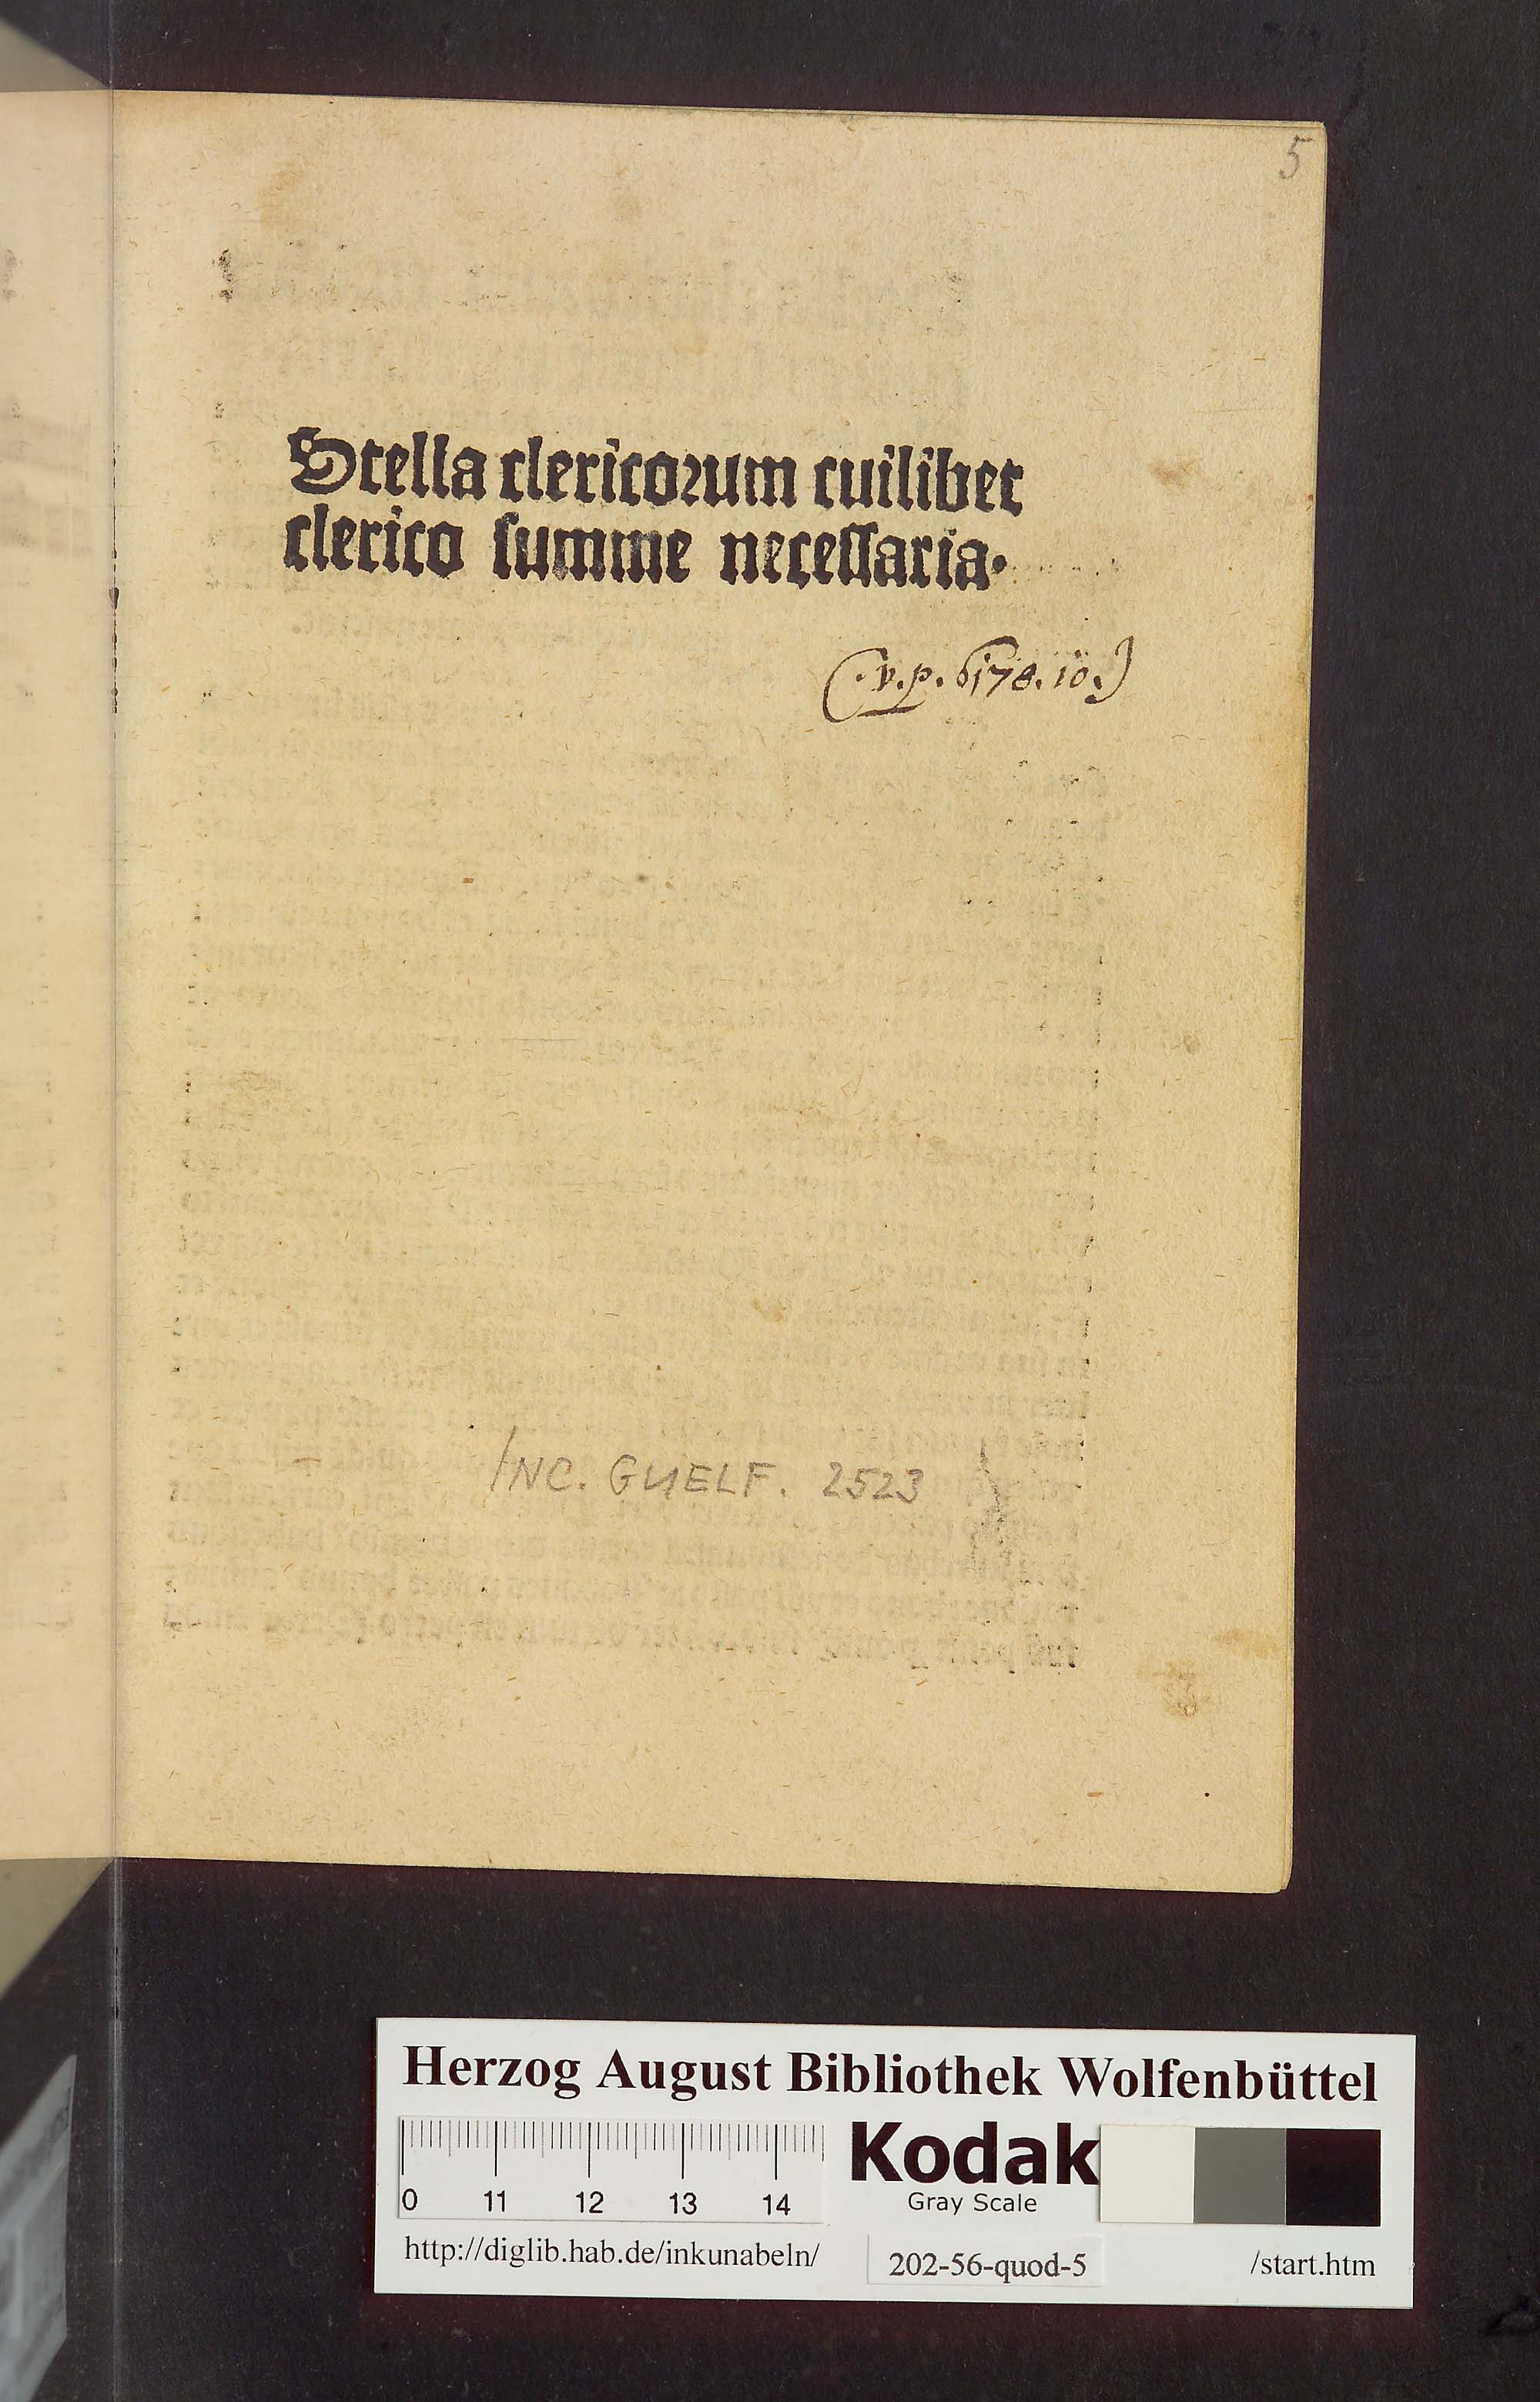 5
Stella clericorum cuilibet
clerico summe necessaria.
(.v.p. 6178.10.)
INC. GUELF. 2523
Herzog August Bibliothek Wolfenbüttel
0 11 12 13 14
Kodak
Gray Scale
http://diglib.hab.de/inkunabeln/ 202-56-quod-5 /start.htm